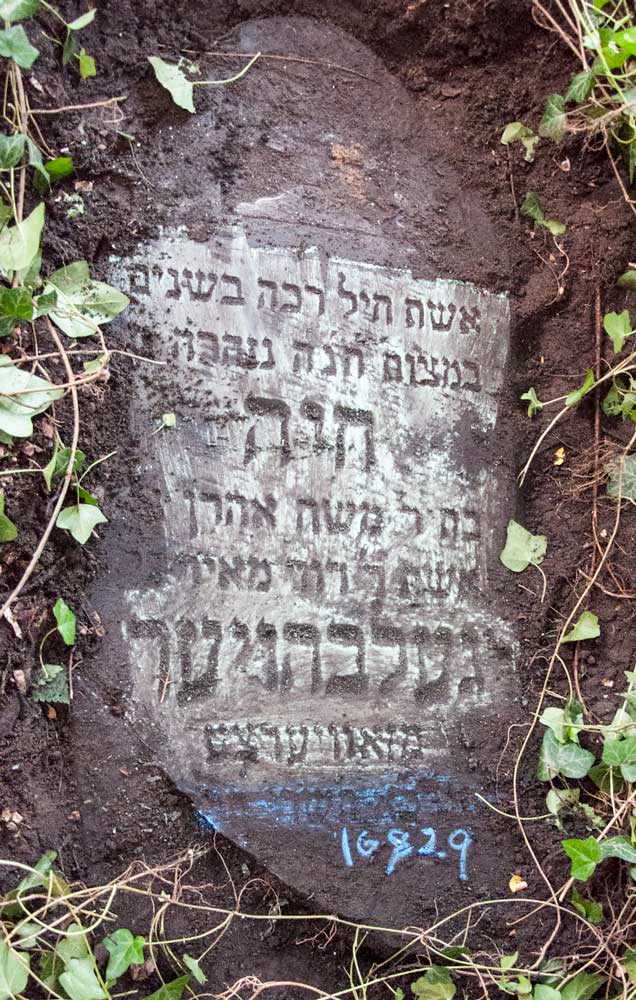 אשת חיל רכה בשנים
במצום הנה נצבבה
חיה
בת ר' משה אהרן
אשת ר' דוד מאיר
געלבהויער
16829